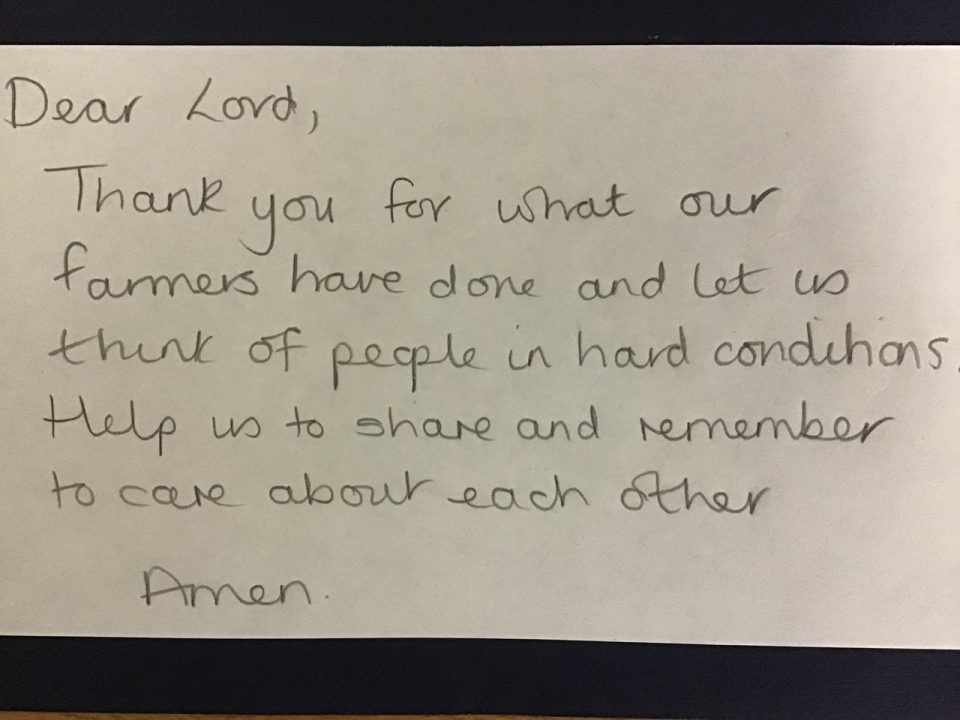 Dear Lord,
Thank you for what our
farmers have done and let us
think of people in hard conditions.
Help us to share and remember
to care about each other
Amen.